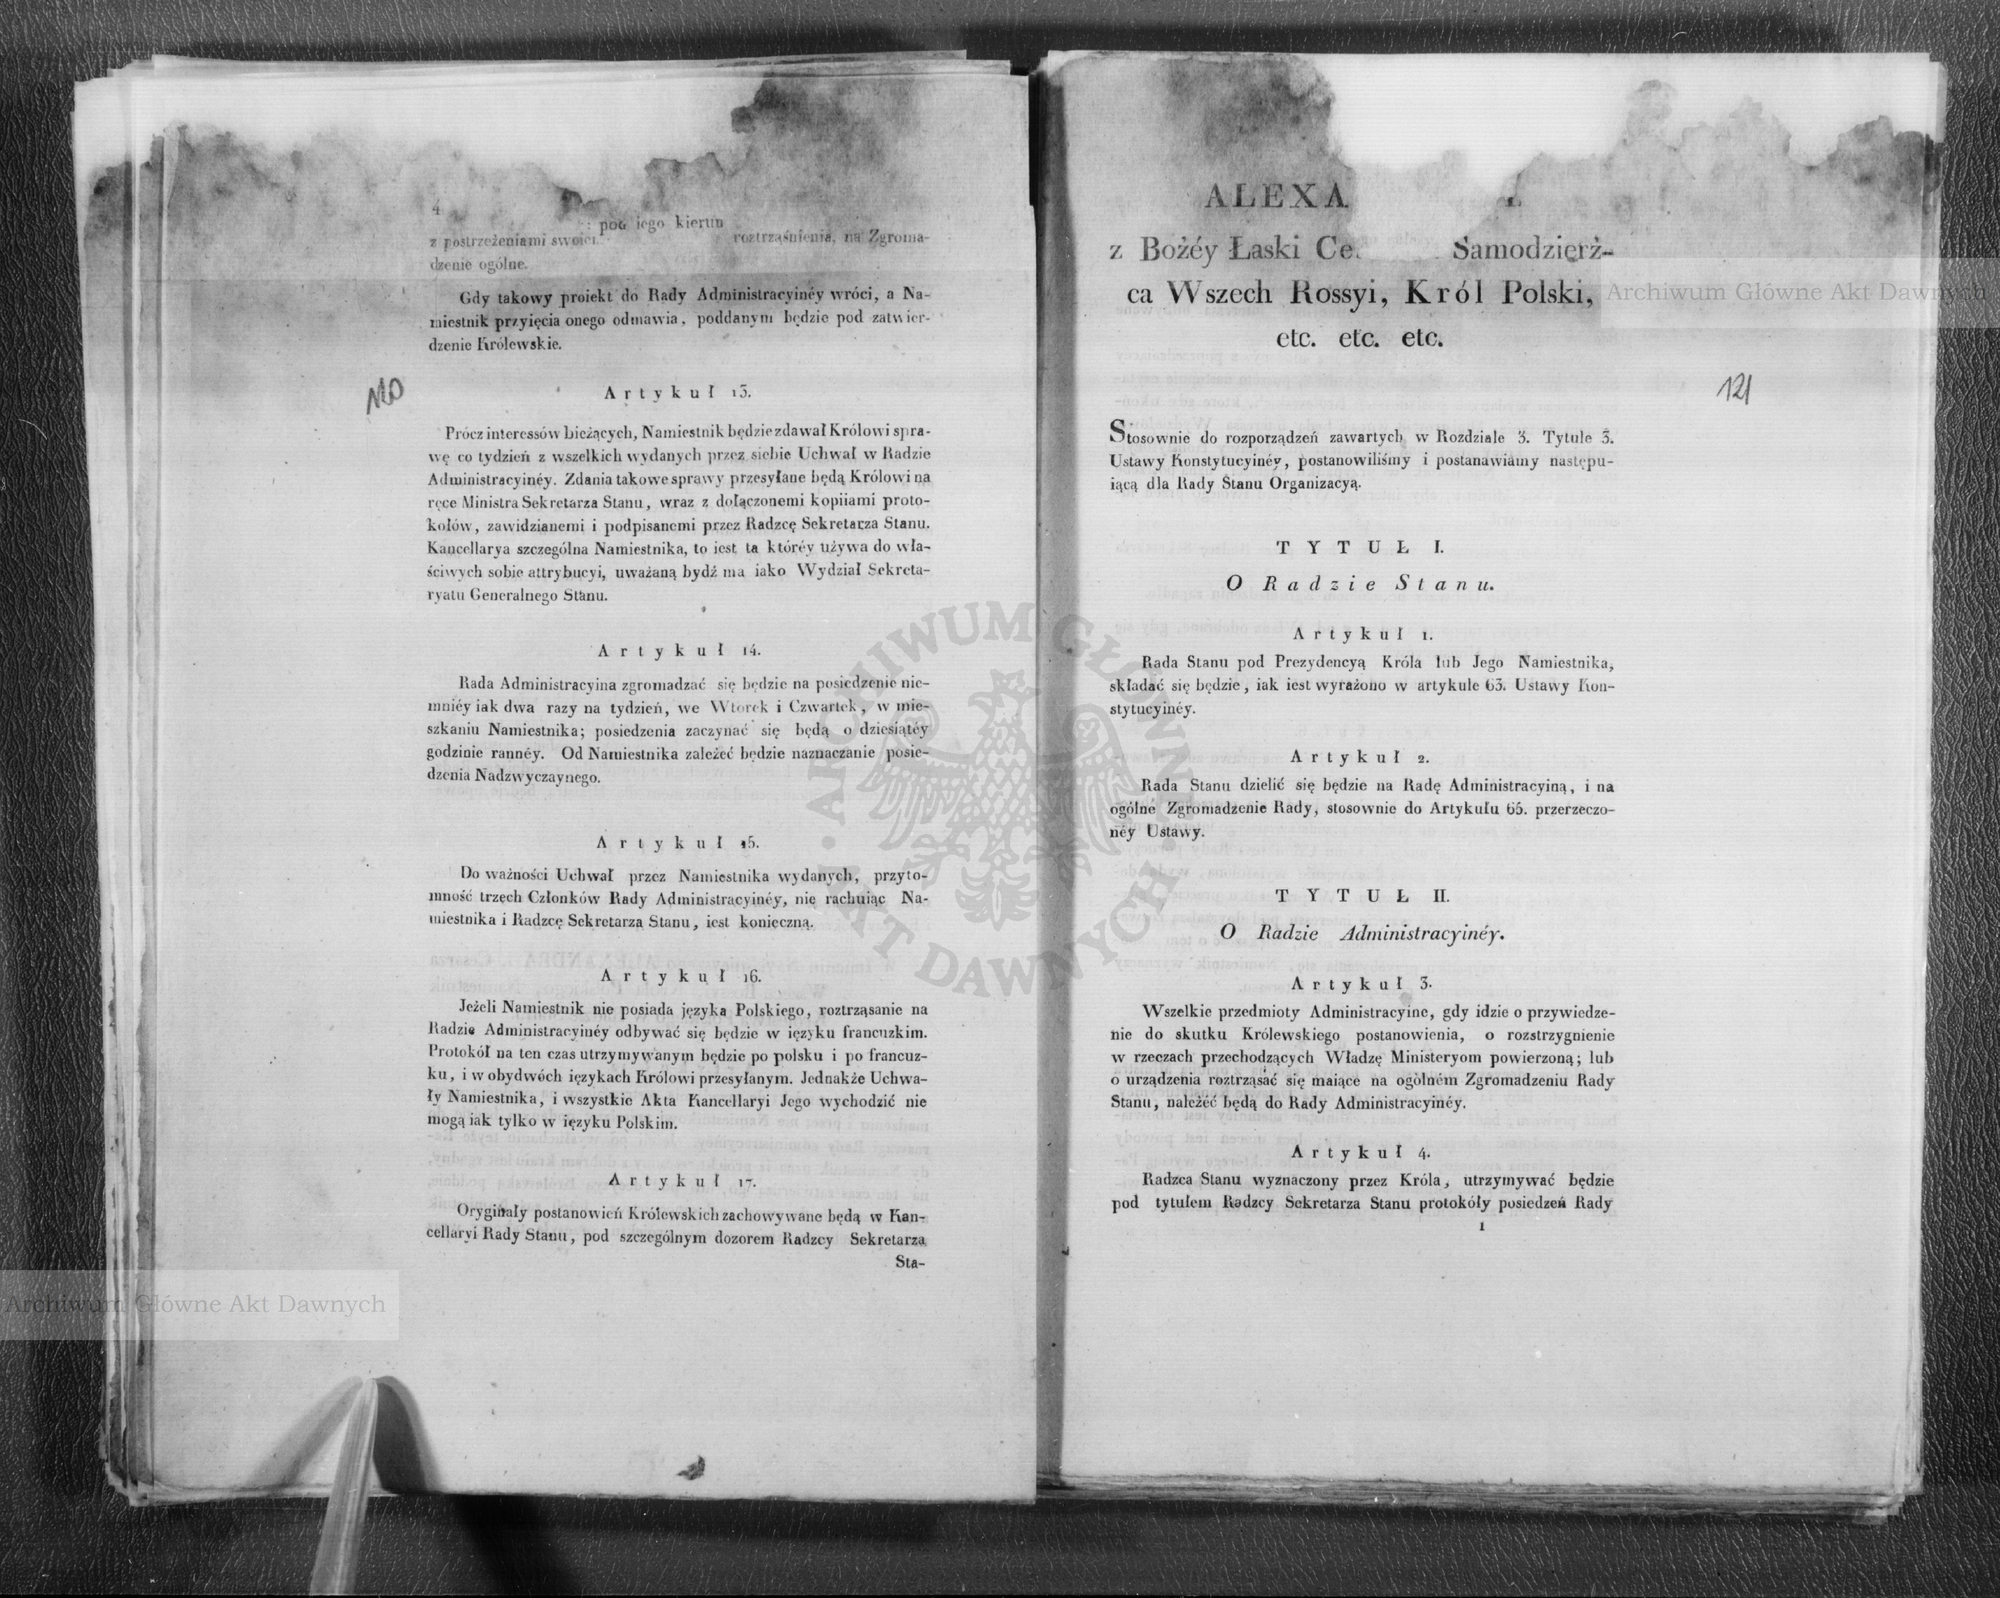 4
pod iego kierun
z postrzeżeniami swoiei roztrząśnienia, na Zgroma-
dzenie ogólne.
Gdy takowy proiekt do Rady Administracyinéy wróci, a Na-
miestnik przyięcia onego odmawia, poddanym będzie pod zatwier-
dzenie Królewskie.
120
Artykuł 13.
Prócz interessów bieżących, Namiestnik będzie zdawał Królowi spra-
wę co tydzień z wszelkich wydanych przez siebie Uchwał w Radzie
Administracyinéy. Zdania takowe sprawy przesyłane będą Królowi na
ręce Ministra Sekretarza Stanu, wraz z dołączonemi kopiiami proto-
kołów, zawidzianemi i podpisanemi przez Radzcę Sekretarza Stanu.
Kancellarya szczególna Namiestnika, to iest ta któréy używa do wła-
ściwych sobie attrybucyi, uważaną bydź ma iako Wydział Sekreta-
ryatu Generalnego Stanu.
Artykuł 14.
Rada Administracyina zgromadzać się będzie na posiedzenie nie-
mniéy iak dwa razy na tydzień, we Wtorek i Czwartek, w mie-
szkaniu Namiestnika; posiedzenia zaczynać się będą o dziesiątéy
godzinie rannéy. Od Namiestnika zależeć będzie naznaczanie posie-
dzenia Nadzwyczaynego.
Artykuł 15.
Do ważności Uchwał przez Namiestnika wydanych, przyto-
mność trzech Członków Rady Administracyinéy, nie rachuiąc Na-
miestnika i Radzcę Sekretarza Stanu, iest konieczną.
Artykuł 16.
Jeżeli Namiestnik nie posiada języka Polskiego, roztrząsanie na
Radzie Administracyinéy odbywać się będzie w ięzyku francuzkim.
Protokół na ten czas utrzymywanym będzie po polsku i po francuz-
ku, i w obydwóch ięzykach Królowi przesyłanym. Jednakże Uchwa-
ły Namiestnika, i wszystkie Akta Kancellaryi Jego wychodzić nie
mogą iak tylko w ięzyku Polskim.
Artykuł 17.
Oryginały postanowień Królewskich zachowywane będą w Kan-
cellaryi Rady Stanu, pod szczególnym dozorem Radzcy Sekretarza
Sta-
ALEXA
z Bożéy Łaski Ce Samodzierż-
ca Wszech Rossyi, Król Polski,
etc. etc. etc.
121
Stosownie do rozporządzeń zawartych w Rozdziale 3. Tytule 3.
Ustawy Konstytucyinéy, postanowiliśmy i postanawiamy następu-
iącą dla Rady Stanu Organizacyą.
TYTUŁ I.
O Radzie Stanu.
Artykuł 1.
Rada Stanu pod Prezydencyą Króla lub Jego Namiestnika,
składać się będzie, iak iest wyrażono w artykule 63. Ustawy Kon-
stytucyinéy.
Artykuł 2.
Rada Stanu dzielić się będzie na Radę Administracyiną, i na
ogólne Zgromadzenie Rady, stosownie do Artykułu 65. przerzeczo-
néy Ustawy.
TYTUŁ II.
O Radzie Administracyinéy.
Artykuł 3.
Wszelkie przedmioty Administracyine, gdy idzie o przywiedze-
nie do skutku Królewskiego postanowienia, o rozstrzygnienie
w rzeczach przechodzących Władzę Ministeryom powierzoną; lub
o urządzenia roztrząsać się maiące na ogólném Zgromadzeniu Rady
Stanu, należéć będą do Rady Administracyinéy.
Artykuł 4.
Radzca Stanu wyznaczony przez Króla, utrzymywać będzie
pod tytułem Radzcy Sekretarza Stanu protokóły posiedzeń Rady
1
Archiwum Główne Akt Dawnych
Archiwum Główne Akt Dawnych
ARCHIWUM GŁÓWNE AKT DAWNYCH